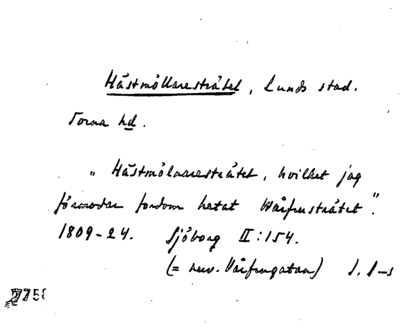 Hästmöllaresträtet, Lunds stad.
Torna hd.
"Hästmölnaresträtet, hvilket jag
förmodar fordom hetat Wårfrusträtet".
1809-24. Sjöborg II:154.
(= nuv. Vårfrugatan) J. S-s